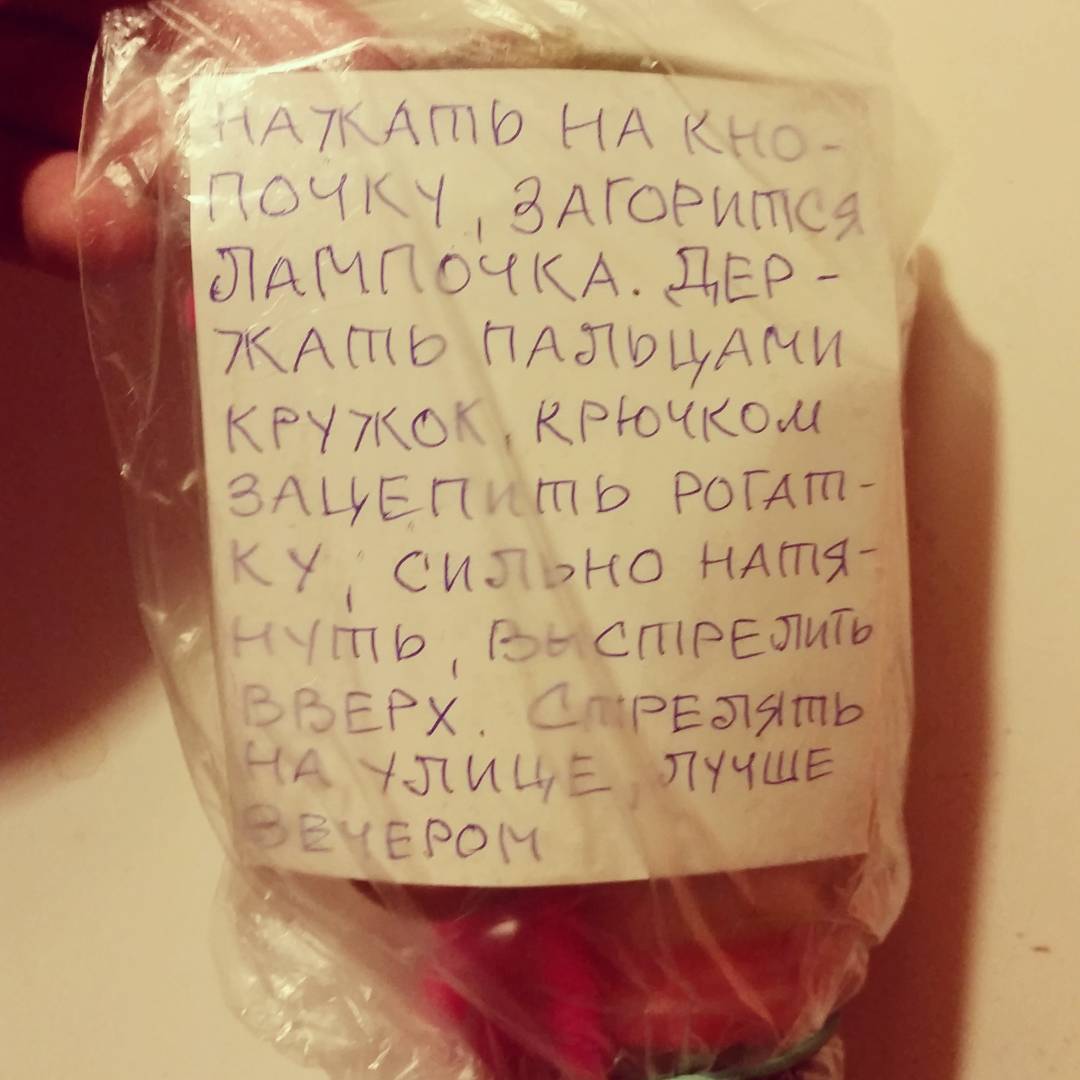 НАЖАТЬ НА КНО-
ПОЧКУ, ЗАГОРИТСЯ
ЛАМПОЧКА. ДЕР-
ЖАТЬ ПАЛЬЦАМИ
КРУЖОК, КРЮЧКОМ
ЗАЦЕПИТЬ РОГАТ-
КУ, СИЛЬНО НАТЯ-
НУТЬ, ВЫСТРЕЛИТЬ
ВВЕРХ. СТРЕЛЯТЬ
НА УЛИЦЕ, ЛУЧШЕ
ВЕЧЕРОМ